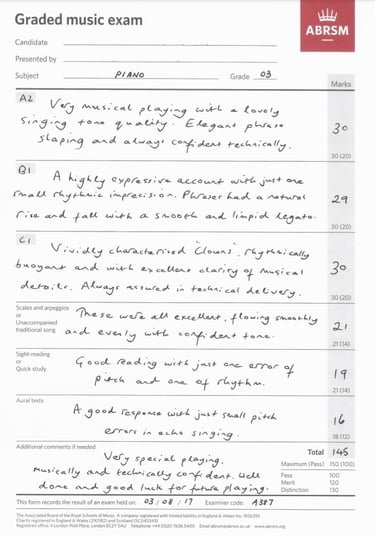 Graded music exam
ABRSM
Candidate
Presented by
Subject PIANO Grade 03
Marks
A2 Very musical playing with a lovely
singing tone quality. Elegant phrase
shaping and always confident technically.
30
30 (20)
B1 A highly expressive account with just one
small rhythmic imprecision. Phrases had a natural
rise and fall with a smooth and limpid legato.
29
30 (20)
C1 Vividly characterised "Clowns". Rhythmically
buoyant and with excellent clarity of musical
details. Always assured in technical delivery.
30
30 (20)
Scales and arpeggios
or
Unaccompanied
traditional song
These were all excellent, flowing smoothly
and evenly with confident tone.
21
21 (14)
Sight-reading
or
Quick study
Good reading with just one error of
pitch and one of rhythm.
19
21 (14)
Aural tests
A good response with just small pitch
errors in echo singing.
16
18 (12)
Additional comments if needed
Very special playing.
musically and technically confident. Well
done and good luck for future playing.
Total 145
Maximum (Pass) 150 (100)
Pass 100
Merit 120
Distinction 130
This form records the result of an exam held on 03/08/17 Examiner code: A387
The Associated Board of the Royal Schools of Music. A company registered with limited liability in England & Wales No. 1926395.
Charity registered in England & Wales (292182) and Scotland (SC043243)
Registered office: 4 London Wall Place, London EC2Y 5AU Telephone +44 (0)20 7636 5400 Email abrsm@abrsm.ac.uk www.abrsm.org